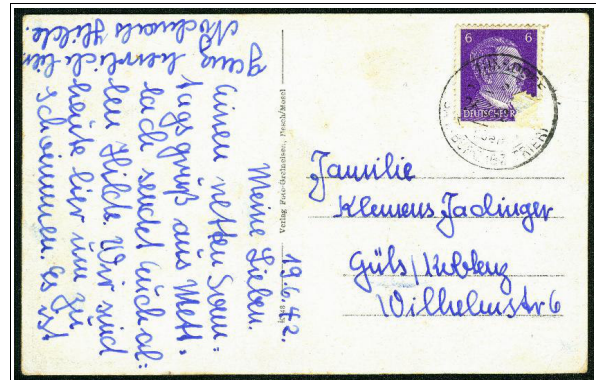 19.6.42.
Meine Lieben.
Einen netten Sonn-
tagsgruß aus Mett-
lach sendet Euch al-
len Hilde. Wir sind
heute hier um zu
schwimmen. Es ist
ganz herrlich hier
Nochmals Hilde.
Verlag Foto-Greimeisen, Mosel
6 6
DEUTSCHES R
Familie
Klemens Jadinger
Güls/Koblenz
Wilhelmstr 6